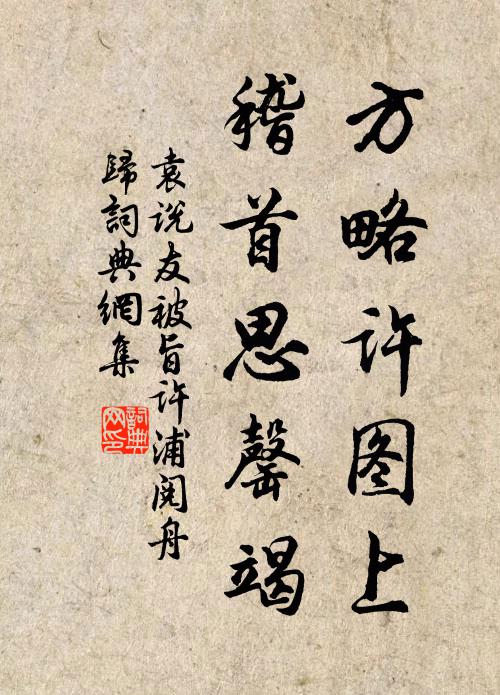 方略许图上
稽首思罄竭
袁说友被旨许浦阅舟
歸詞典網集
詞典网印